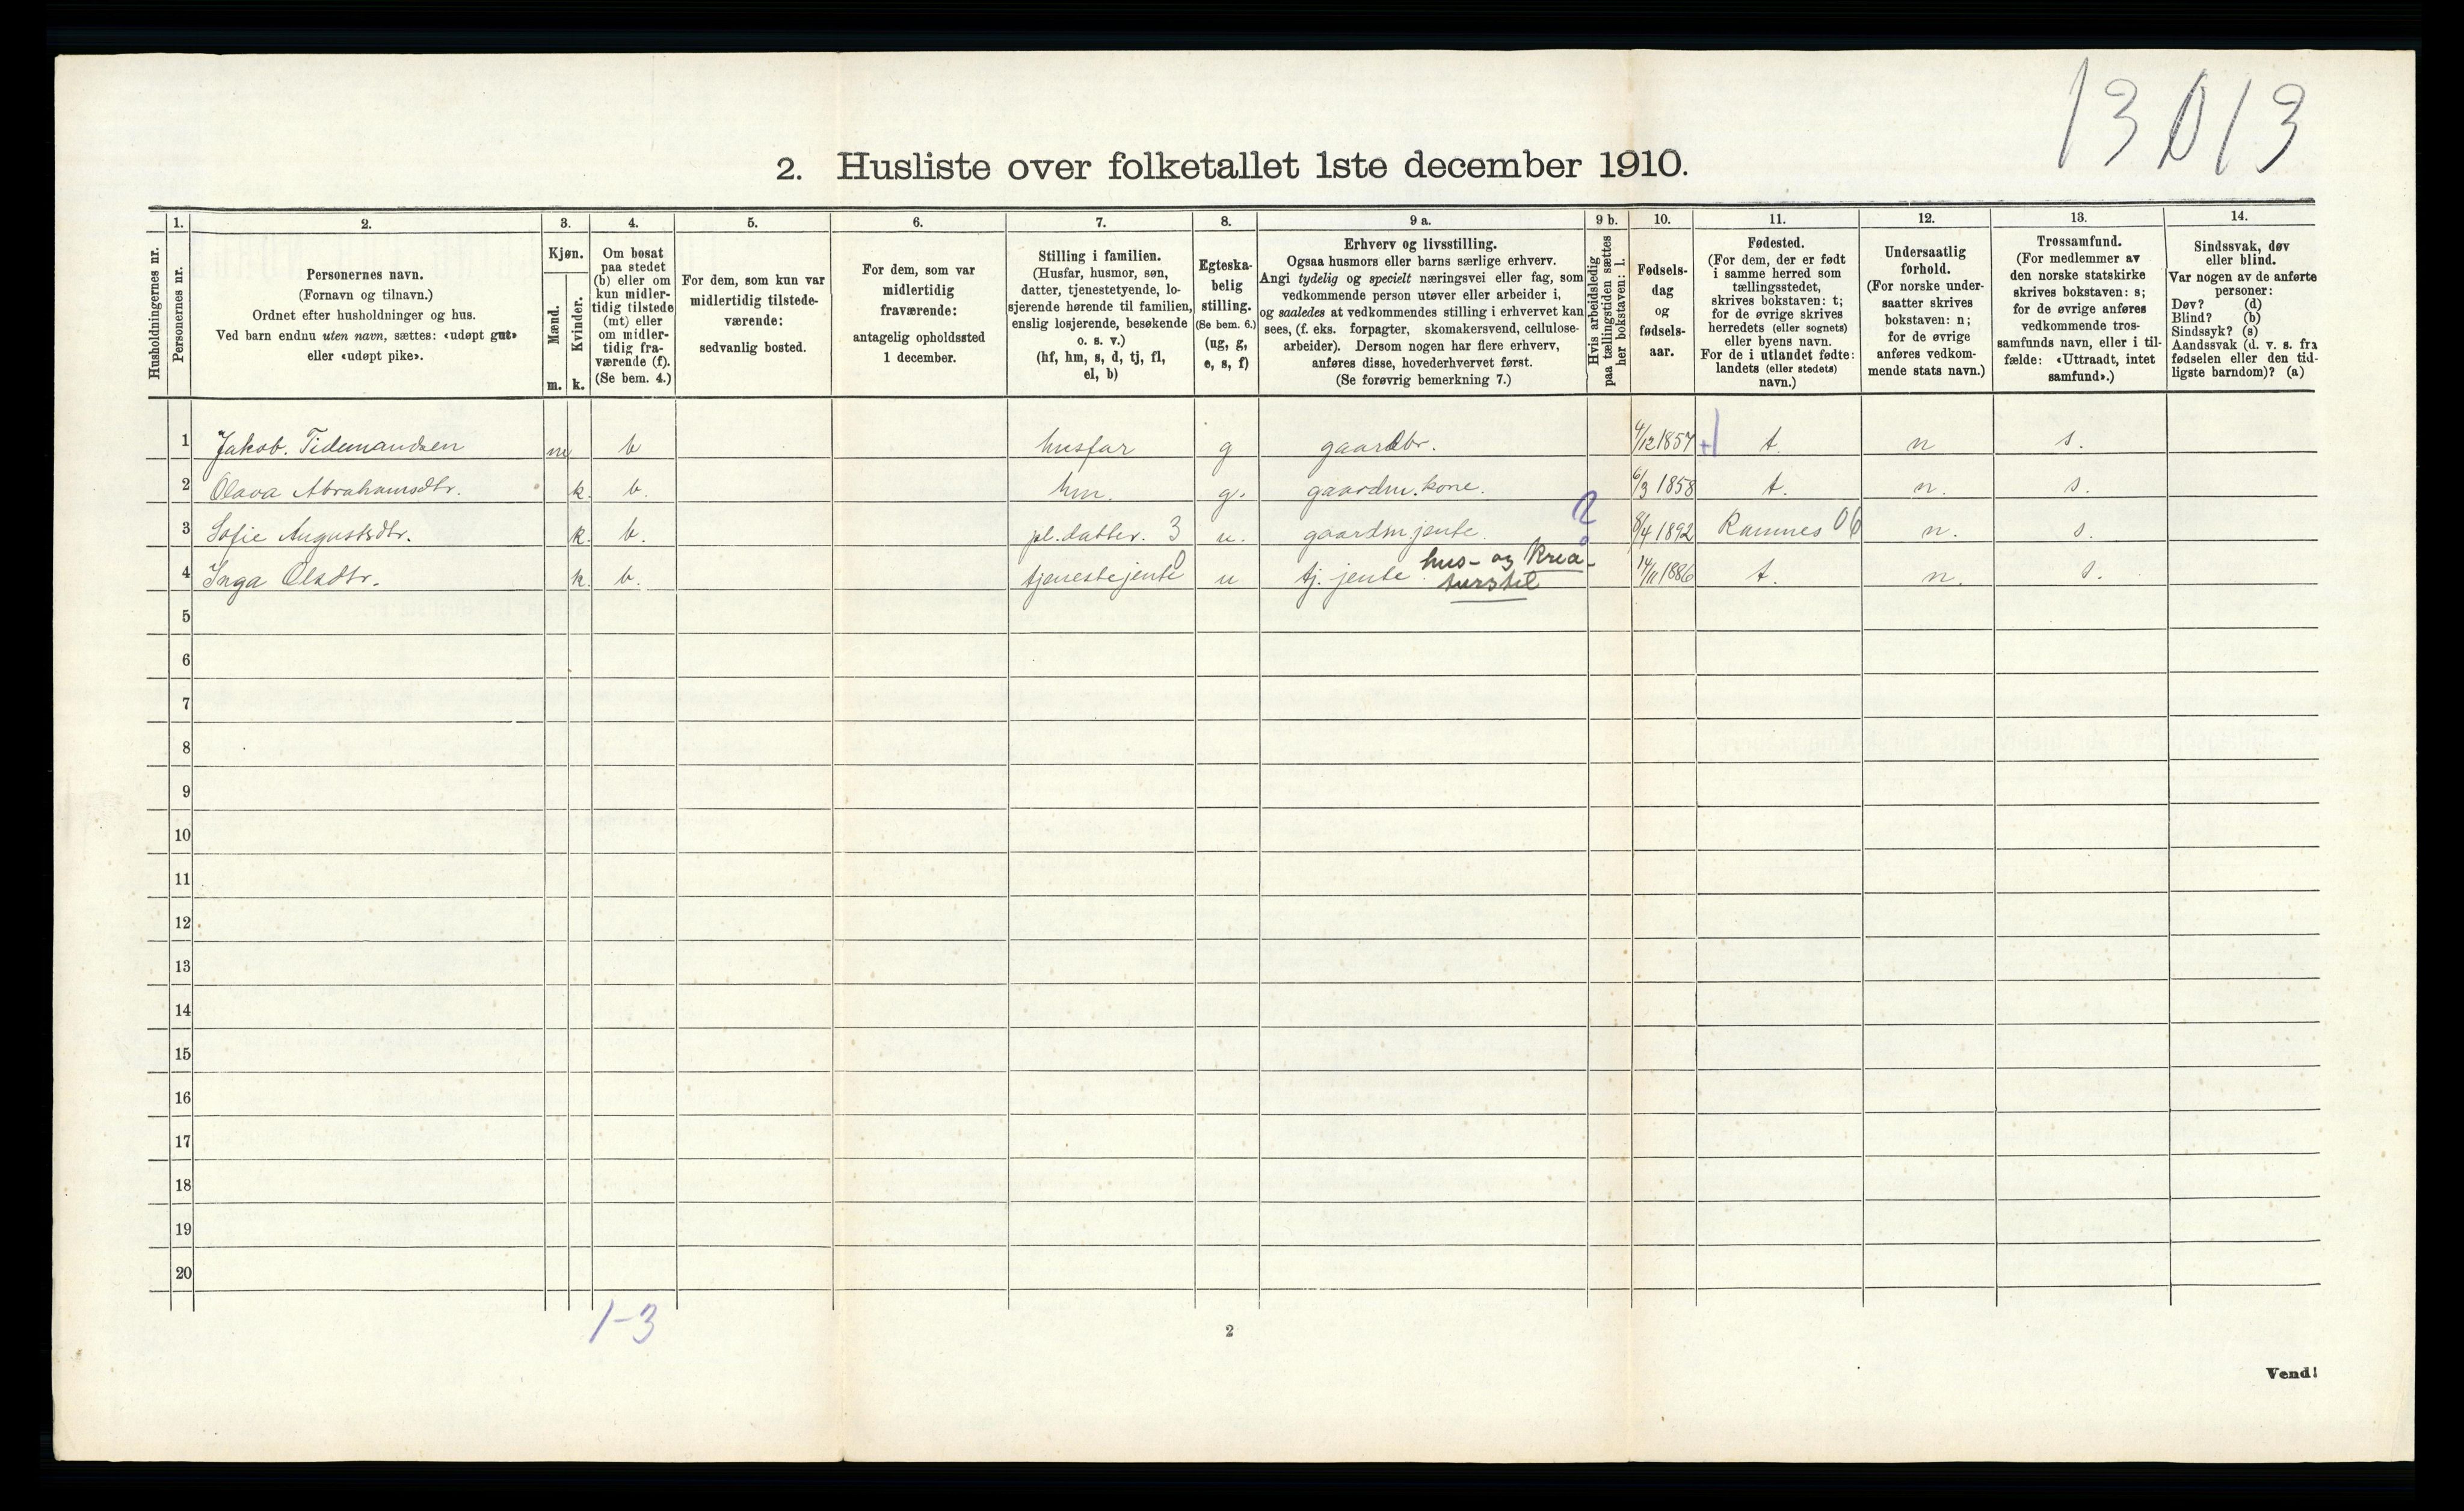 13 013
2. Husliste over folketallet 1ste december 1910.
Husholdningernes nr.
1. Personernes nr.
2. Personernes navn.
(Fornavn og tilnavn.)
Ordnet efter husholdninger og hus.
Ved barn endnu uten navn, sættes: «udøpt gut»
eller «udøpt pike».
3. Kjøn.
Mænd. m.
Kvinder. k.
4. Om bosat
paa stedet
(b) eller om
kun midler-
tidig tilstede
(mt) eller
om midler-
tidig fra-
værende (f).
(Se bem. 4.)
5. For dem, som kun var
midlertidig tilstede-
værende:
sedvanlig bosted.
6. For dem, som var
midlertidig
fraværende:
antagelig opholdssted
1 december.
7. Stilling i familien.
(Husfar, husmor, søn,
datter, tjenestetyende, lo-
sjerende hørende til familien,
enslig losjerende, besøkende
o. s. v.)
(hf, hm, s, d, tj, fl,
el, b)
8. Egteska-
belig
stilling.
(Se bem. 6.)
(ug, g,
e, s, f)
9 a. Erhverv og livsstilling.
Ogsaa husmors eller barns særlige erhverv.
Angi tydelig og specielt næringsvei eller fag, som
vedkommende person utøver eller arbeider i,
og saaledes at vedkommendes stilling i erhvervet kan
sees, (f. eks. forpagter, skomakersvend, cellulose-
arbeider). Dersom nogen har flere erhverv,
anføres disse, hovederhvervet først.
(Se forøvrig bemerkning 7.)
9 b. Hvis arbeidsledig
paa tællingstiden sættes
her bokstaven: l.
10. Fødsels-
dag
og
fødsels-
aar.
11. Fødested.
(For dem, der er født
i samme herred som
tællingsstedet,
skrives bokstaven: t;
for de øvrige skrives
herredets (eller sognets)
eller byens navn.
For de i utlandet fødte:
landets (eller stedets)
navn.)
12. Undersaatlig
forhold.
(For norske under-
saatter skrives
bokstaven: n;
for de øvrige
anføres vedkom-
mende stats navn.)
13. Trossamfund.
(For medlemmer av
den norske statskirke
skrives bokstaven: s;
for de øvrige anføres
vedkommende tros-
samfunds navn, eller i til-
fælde: «Uttraadt, intet
samfund».)
14. Sindssvak, døv
eller blind.
Var nogen av de anførte
personer:
Døv? (d)
Blind? (b)
Sindssyk? (s)
Aandssvak (d. v. s. fra
fødselen eller den tid-
ligste barndom)? (a)
1 Jakob. Tidemandsen m b husfar g gaardbr. 4/12 1857 t. n s.
2 Olava Abrahamsdtr. k. b. hm. g. gaardm. kone. 6/3 1858 t. n. s.
3 Sofie Augustsdtr. k. b. pl. datter. 3 u. gaardm. jente. 8/4 1892 Ramnes 06 n. s.
4 Inga Olsdtr. k. b. tjenestejente 0 u tj. jente hus- og krea-
turstel 14/11 1886 t. n. s.
5
6
7
8
9
10
11
12
13
14
15
16
17
18
19
20
1-3
2
Vend!